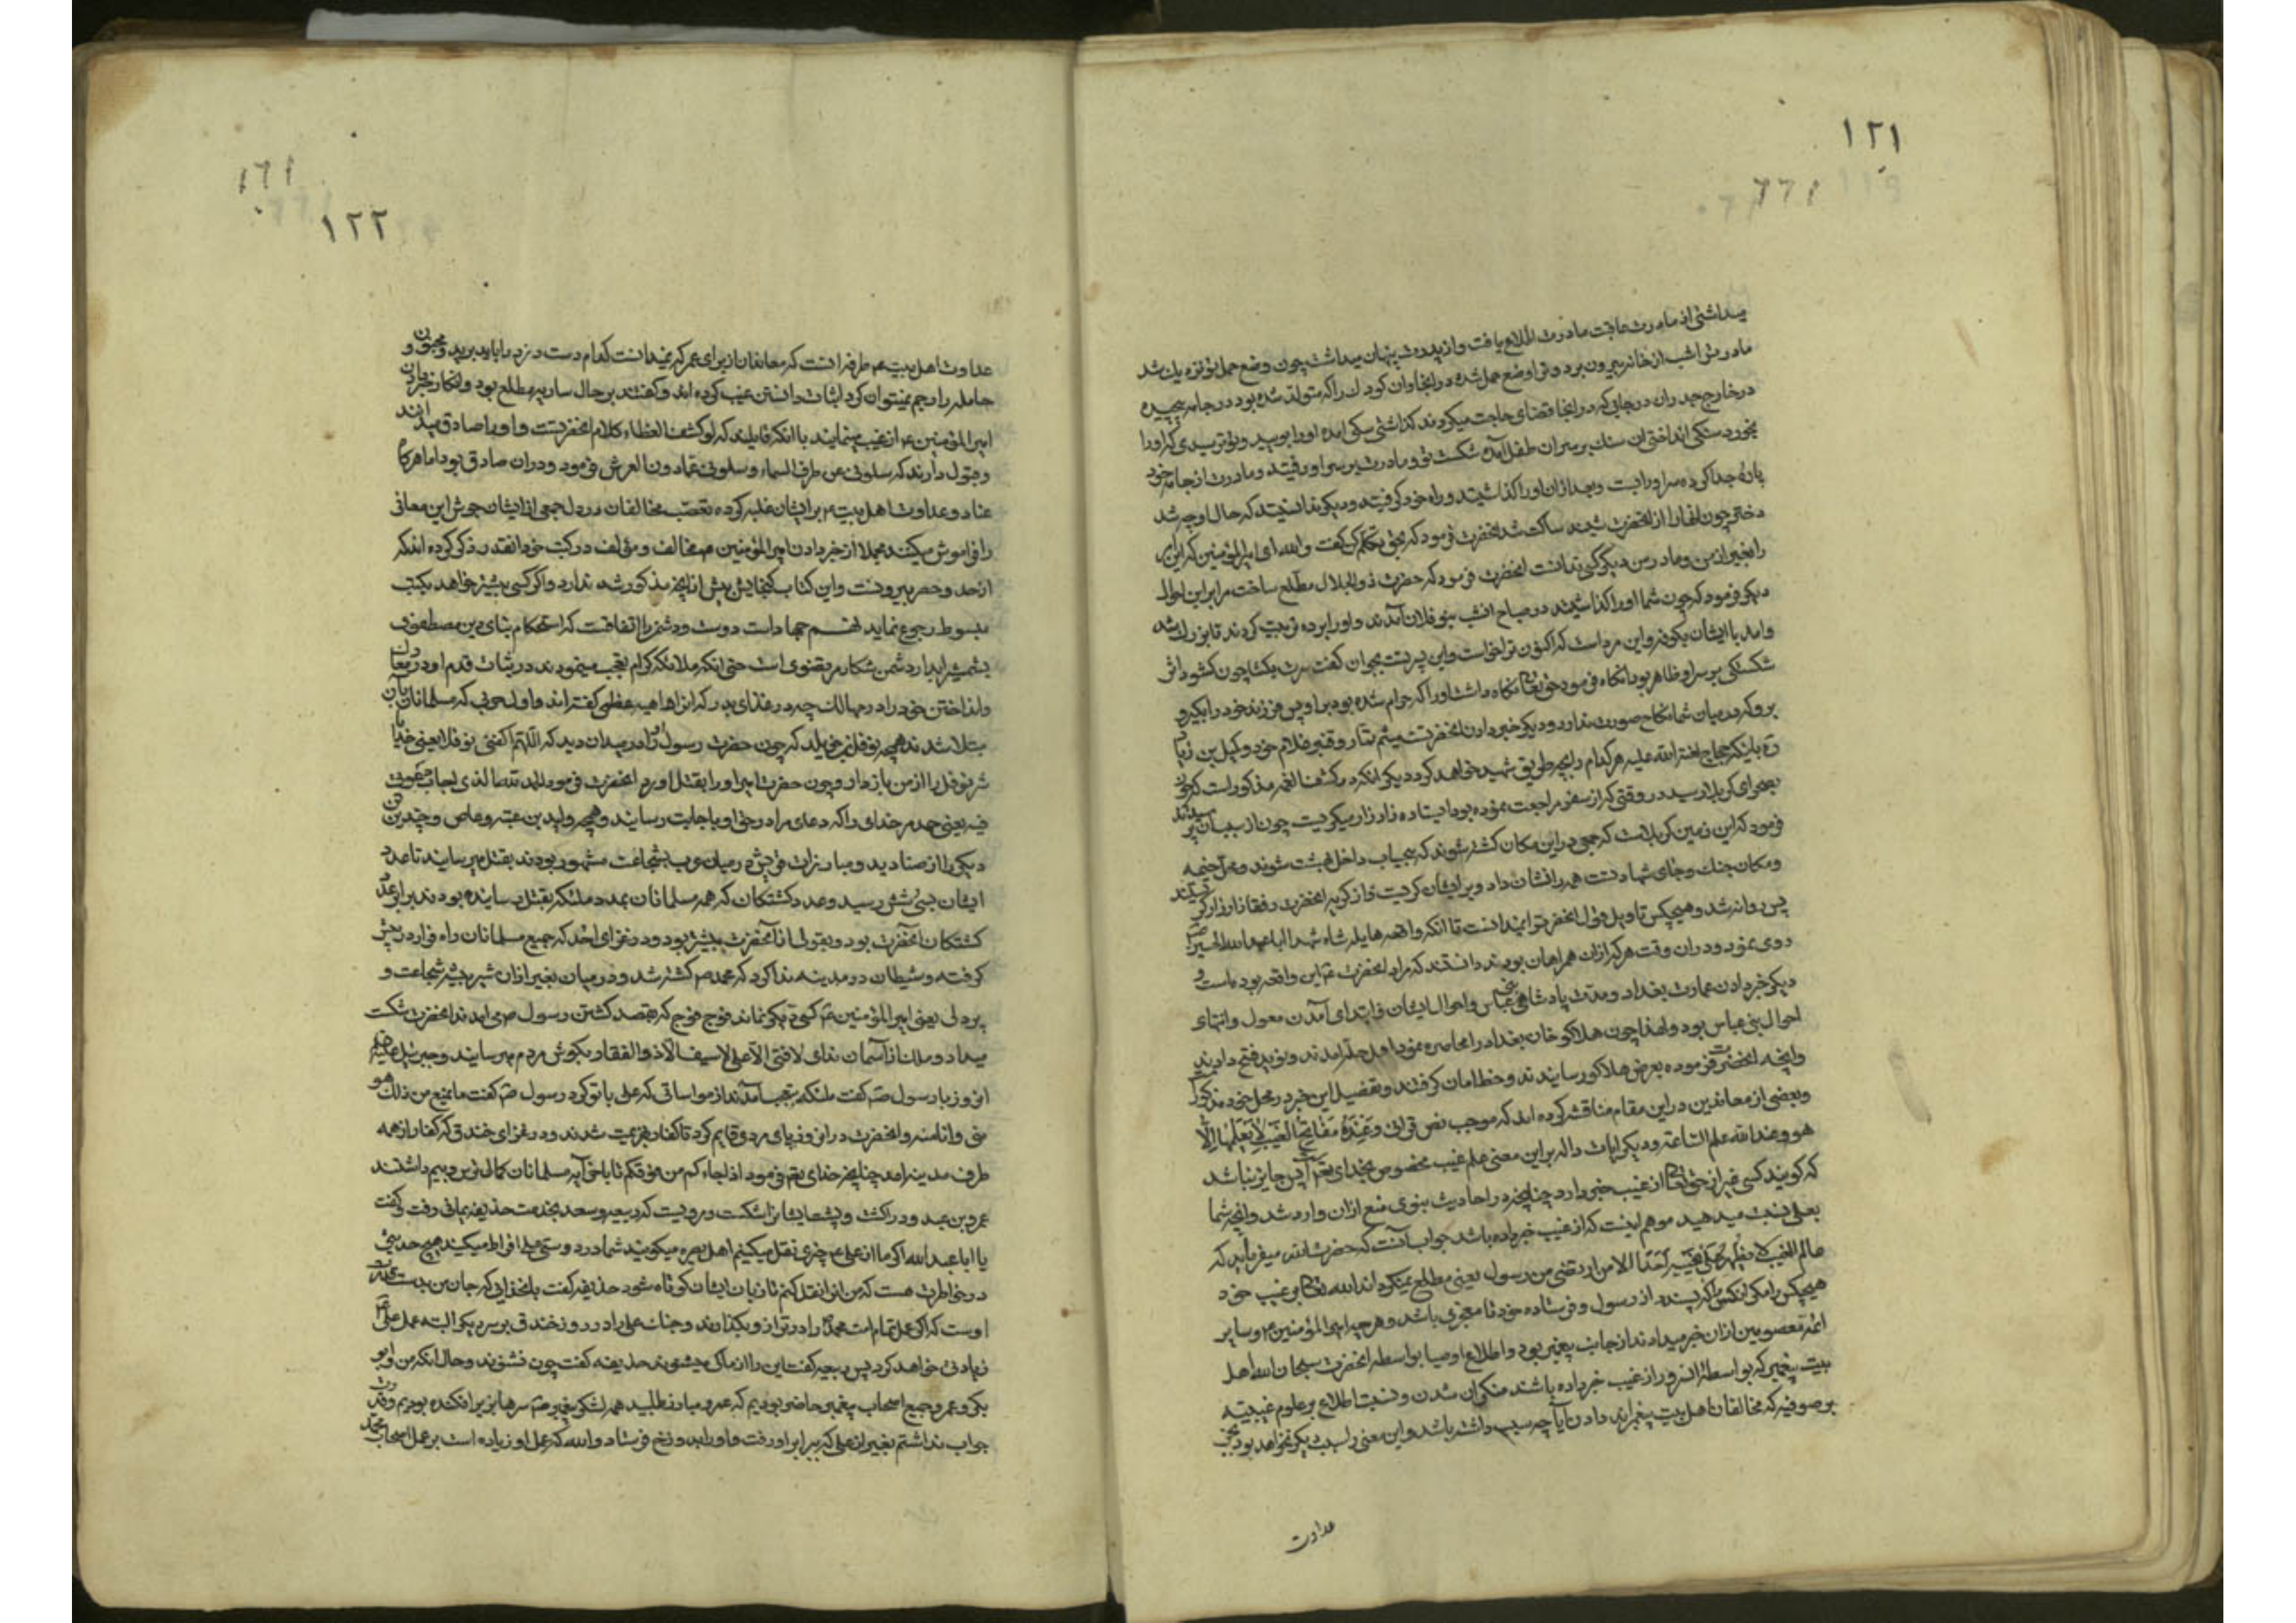 ١٢١
میداشتی از مادرت عاقبت مادرت اطلاع یافت و از پدرت پنهان میداشت چون وضع حمل تو نزدیك شد
مادرت ترا شب از خانه بیرون برد و ترا وضع حمل شده در انجا و ان كودك را كه متولد شده بود در جامه پیچیده
در خارج جدران در جایی كه در انجا قضای حاجت میكردند كذاشتی سكی امده او را بویید و تو ترسیدی كه او را
بخورد سنكی انداختی ان سنك بر سر ان طفل آمده شكست تو و مادرت بر سر او رفتید و مادرت از جامه خود
پارهٔ جدا كرده سر او را بست و بعد از ان او را كذاشتید و راه خود كرفتید و دیكر ندانستید كه حال او چه شد
دختر چون اینها را از انحضرت شنید ساكت شد انحضرت فرمود كه بحق تكلم كن گفت والله ای امیر المؤمنین كه این امر
را بغیر از من و مادر من دیكر كسی ندانست انحضرت فرمود كه حضرت ذو الجلال مطلع ساخت مرا بر این احوال
دیكر فرمود كه چون شما او را كذاشتید در صباح انشب بنو فلان آمدند و او را برده تربیت كردند تا بزرك شد
و امد با ایشان بكوفه و این مرد است كه اكنون ترا خواست و این پسر تست بجوان كفت سرت بكشا چون كشود اثر
شكستكی بر سر او ظاهر بود انكاه فرمود حق تعالی نكاه داشت او را كه حرام شده بود بر او پس فرزند خود را بكیر و
برو كه در میان شما نكاح صورت ندارد و دیكر خبر دادن انحضرت میثم تمار و قنبر غلام خود و كمیل بن زیاد
را باینكه حجاج لعنة الله علیه هر كدام را بچه طریق شهید خواهد كرد دیكر انكه در كشف الغمه مذكور است كه چون
بصحرای كربلا رسید در وقتی كه از سفر مراجعت نموده بود ایستاده زار زار میكریست چون از سبب ان پرسیدند
فرمود كه این زمین كربلاست كه جمعی در این مكان كشته شوند كه بیحساب داخل بهشت شوند و محل خیمه
و مكان جنك و جای شهادت همه را نشان داد و بر ایشان كریست و از كریه انحضرت رفقا زار زار كریستند
پس روانه شد و هیچكس تاویل قول انحضرت را نمیدانست تا انكه واقعه هایله شاه شهدا ابا عبد الله الحسین
روی نمود و در ان وقت هر كه از ان همراهان بودند دانستند كه مراد انحضرت ع این واقعه بوده است و
دیكر خبر دادن عمارت بغداد و مدت پادشاهی بنی عباس و احوال ایشان و ابتدای آمدن مغول و انتهای
احوال بنی عباس بود و لهذا چون هلاكو خان بغداد را محاصره نمود اهل حله آمدند و نوید فتح دادند
و انچه انحضرت فرموده بعرض هلاكو رسانیدند و خط امان كرفتند و تفصیل این خبر در محل خود مذكور است
و بعضی از معاندین در این مقام مناقشه كرده اند كه موجب نص قرانی وَعِندَهُ مَفاتِحُ الغَیبِ لا یَعلَمُها اِلّا
هو و عند الله علم الساعة و دیكر ایات داله بر این معنی علم غیب مخصوص بخدای تعالی پس جایز نباشد
كه كویند كسی غیر از حق تعالی از غیب خبر دارد چنانچه در احادیث نبوی منع از ان وارد شد و انچه شما
بعلی نسبت میدهید موهم اینست كه از غیب خبر داده باشد جواب آنست كه حضرت الله میفرماید كه
عالم الغیب لا یُظهِرُ عَلی غَیبِه اَحَدًا الا من ارتضی من رسول یعنی مطلع نمیكرداند الله تعالی بر غیب خود
هیچكس را مكر انكس را كه پسندد از رسول و فرستاده خود تا معجزی باشد و هر چه امیر المؤمنین ع و سایر
ائمه معصومین از ان خبر میدادند از جانب پیغمبر بود و اطلاع اوصیا بواسطه انحضرت سبحان الله اهل
بیت پیغمبر كه بواسطهٔ انسرور از غیب خبر داده باشند منكر ان شدن و نسبت اطلاع بر علوم غیبیه
بر صوفیه كه مخالفان اهل بیت پیغمبراند دادن آیا چه سبب داشته باشد و این معنی را سبب دیكر نخواهد بود بجز
عداوت
١٦١
١٢٢
عداوت اهل بیت ع طرفه انست كه معاندان از برای عمر كه نمیدانست كدام دست دزد را باید برید و مجنون و
حامله را رجم نمیتوان كرد اثبات دانستن غیب كرده اند و كفتند بر حال ساریه مطلع بود و انكار خبر دادن
امیر المؤمنین ع از غیب مینمایند با انكه قایلند كه لو كشف الغطاء كلام انحضرتست و او را صادق میدانند
و قبول دارند كه سلونی عن طرق السماء و سلونی عما دون العرش فرمود و در ان صادق بود اما هر كاه
عناد و عداوت اهل بیت ع بر ایشان غلبه كرده تعصب مخالفان در دل جمعی از ایشان جوش این معانی
را فراموش میكنند مجملا از خبر دادن امیر المؤمنین ع مخالف و مؤلف در كتب خود انقدر ذكر كرده اند كه
از حد و حصر بیرونست و این كتاب كنجایش بیش از انچه مذكور شد ندارد و اكر كسی بیشتر خواهد بكتب
مبسوط رجوع نماید نهم جهاد است دوست و دشمن را اتفاقست كه استحكام بنای دین مصطفوی
بشمشیر ابدار دشمن شكار مرتضوی است حتی انكه ملائكه كرام تعجب مینمودند در ثبات قدم او در معارك
و انداختن خود را در مهالك چه در غزای بدر كه انرا داهیه عظمی كفته اند و اول حربی كه مسلمانان بآن
مبتلا شدند همچو نوفل بن خویلد كه چون حضرت رسول او را در میدان دید كه اللهم اكفنی نوفلا یعنی خدایا
شر نوفل را از من باز دار و چون حضرت امیر او را بقتل اورد انحضرت فرمود الحمد لله الذی اجاب دعوتی
فیه یعنی حمد مر خدای را كه دعای مرا در حق او باجابت رسانید و همچو ولید بن عتبه و عاص و چندین
دیكر را از صنادید و مبارزان قریش در میان عرب بشجاعت مشهور بودند بقتل میرسانید تا عدد
ایشان بسی و شش رسید و عدد كشتكان كه همه مسلمانان بمدد ملئكه بقتل رسانیده بودند برابر عدد
كشتكان آنحضرت بود و بقولی از آنحضرت بیشتر بود و در غزای احد كه جمیع مسلمانان راه فرار در پیش
كرفته و شیطان در مدینه ندا كرد كه محمد ص كشته شد و در میان بغیر از ان شیر بیشه شجاعت و
پردلی یعنی امیر المؤمنین ع كسی دیكر نماند فوج فوج كه بقصد كشتن رسول ص می امدند انحضرت شكست
میداد و ملك از آسمان ندای لا فتی الا علی لا سیف الا ذو الفقار بكوش مردم میرسانید و جبرئیل علیه السلام
انروز با رسول ص كفت ملئكه بتعجب آمدند از مواساتی كه علی با تو كرد رسول ص كفت ما یمنع من ذلك و هو
منی و انا منه و انحضرت در ان روز پای مردی قایم كرد تا كفار هزیمت شدند و در غزای خندق كه كفار از همه
طرف مدینه امد چنانچه خدای تعالی فرمود اذ جاءكم من فوقكم تا باخر آیه مسلمانان كمال ترس و بیم داشتند
عمرو بن عبد ود را كشت و پشت ایشانرا شكست مرویست كه ربیعه سعد بخدمت حذیفه یمانی رفت و كفت
یا ابا عبد الله اكر ما از علی ع چیزی نقل میكنیم اهل بصره میكویند شما در دوستی علی افراط میكنید هیچ حدیثی
در خاطرت هست كه من انرا نقل كنم تا زبان ایشان كوتاه شود حذیفه كفت بان خدایی كه جان من بدست قدرت
اوست كه اكر عمل تمام امت محمد را در ترازو بكذارند و جنك علی را در روز خندق بر سر دیكر البته عمل علی ع
زیادتی خواهد كرد پس ربیعه كفت این را از ما كی میشنوند حذیفه كفت چون نشنوند و حال انكه من و ابو
بكر و عمر و جمیع اصحاب پیغمبر حاضر بودیم كه عمرو مبارز طلبید همه لشكر پیغمبر ص سرها بزیر افكنده بودیم و قدرت
جواب نداشتیم بغیر از علی كه ببرابر او رفت و او را بدوزخ فرستاد و الله كه عمل او زیاده است بر عمل اصحاب محمد